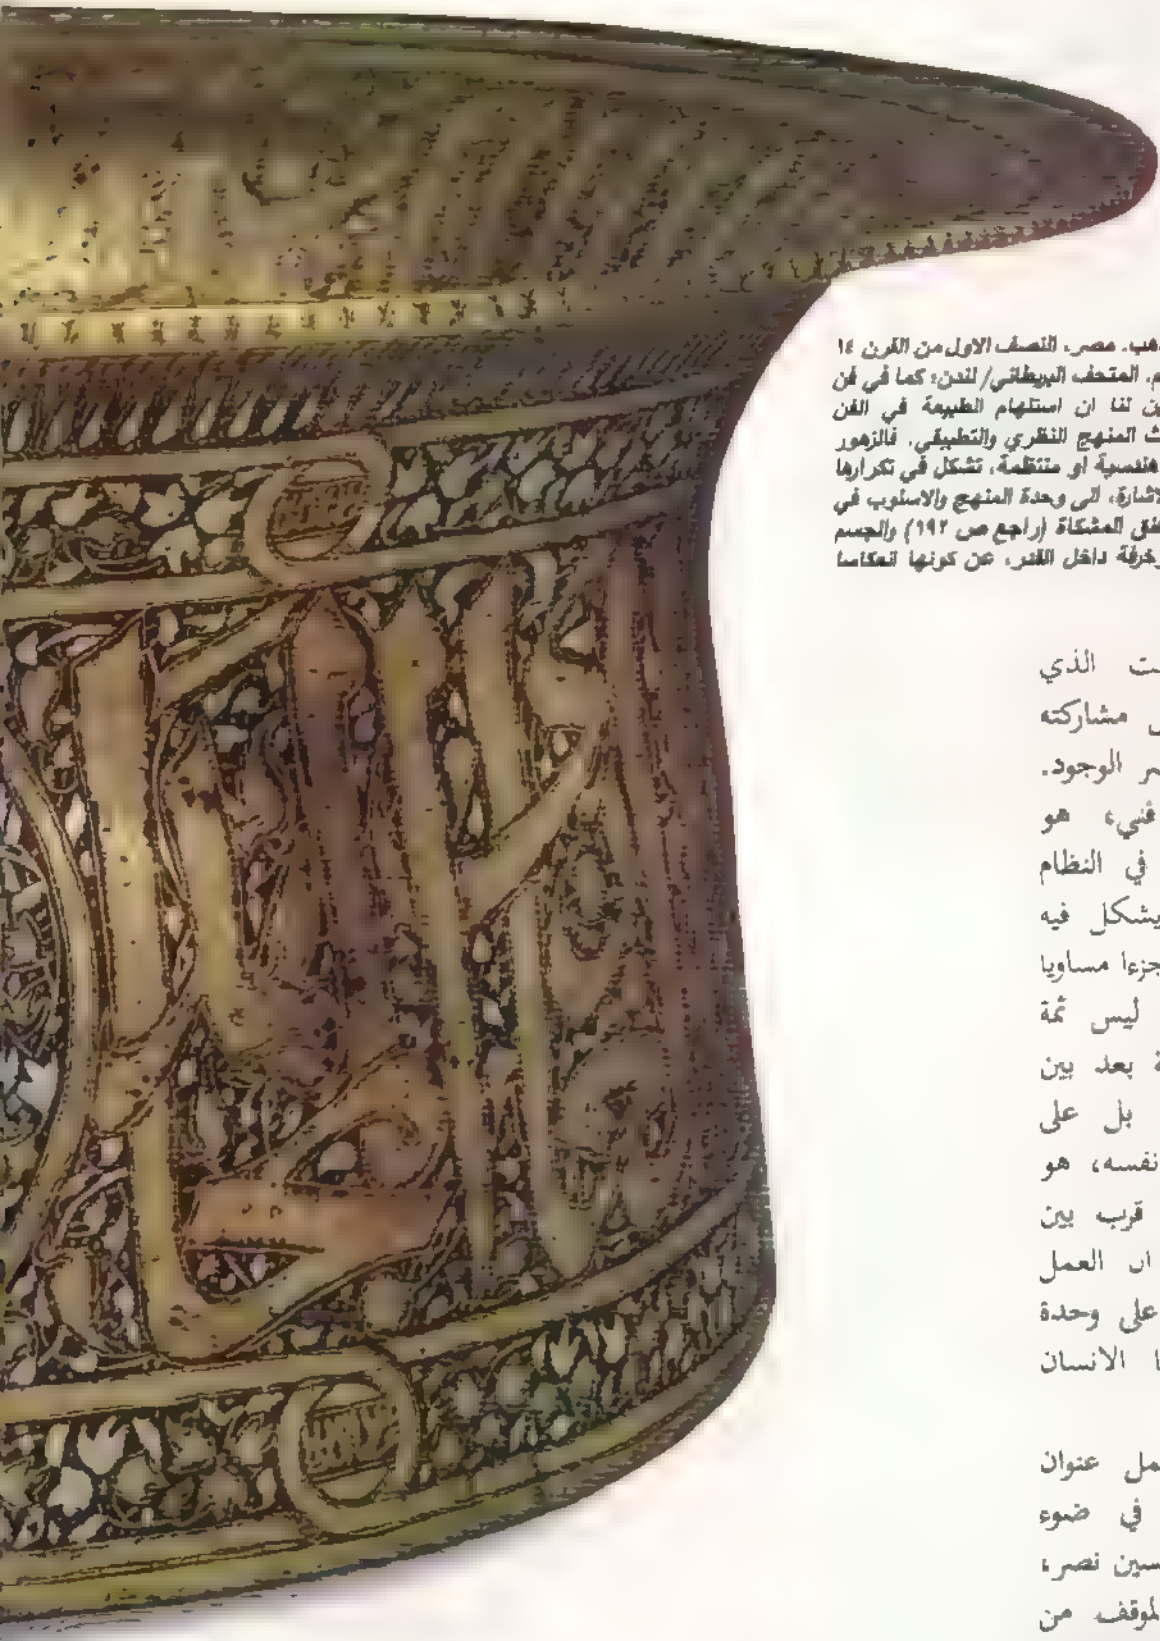 هب. مصر، النصف الاول من القرن ١٤
م. المتحف البريطاني/ لندن؛ كما في فن
ين لنا ان استلهام الطبيعة في الفن
ث المنهج النظري والتطبيقي. فالزهور
هندسية او منتظمة، تشكل في تكرارها
لاشارة، الى وحدة المنهج والاسلوب في
المشكاة (راجع ص ١٩٢) والجسم
خرفة داخل القدر، عن كونها انعكاسا
ت الذي
مشاركته
ر الوجود.
فني، هو
في النظام
يشكل فيه
جزءا مساويا
ليس ثمة
ة بعد بين
بل على
نفسه، هو
قرب بين
ان العمل
على وحدة
ا الانسان
مل عنوان
في ضوء
سين نصر،
لموقف من